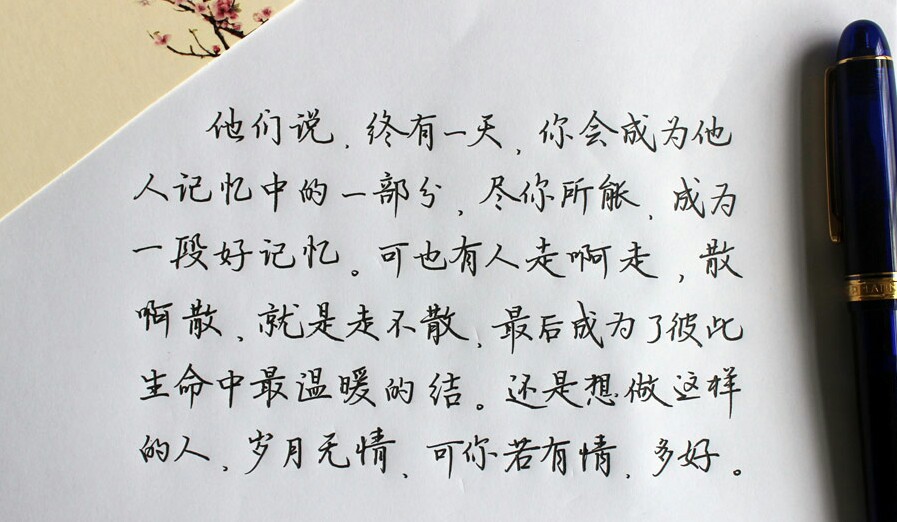 他们说，终有一天，你会成为他
人记忆中的一部分，尽你所能，成为
一段好记忆。可也有人走啊走，散
啊散，就是走不散，最后成为了彼此
生命中最温暖的结。还是想做这样
的人，岁月无情，可你若有情，多好。